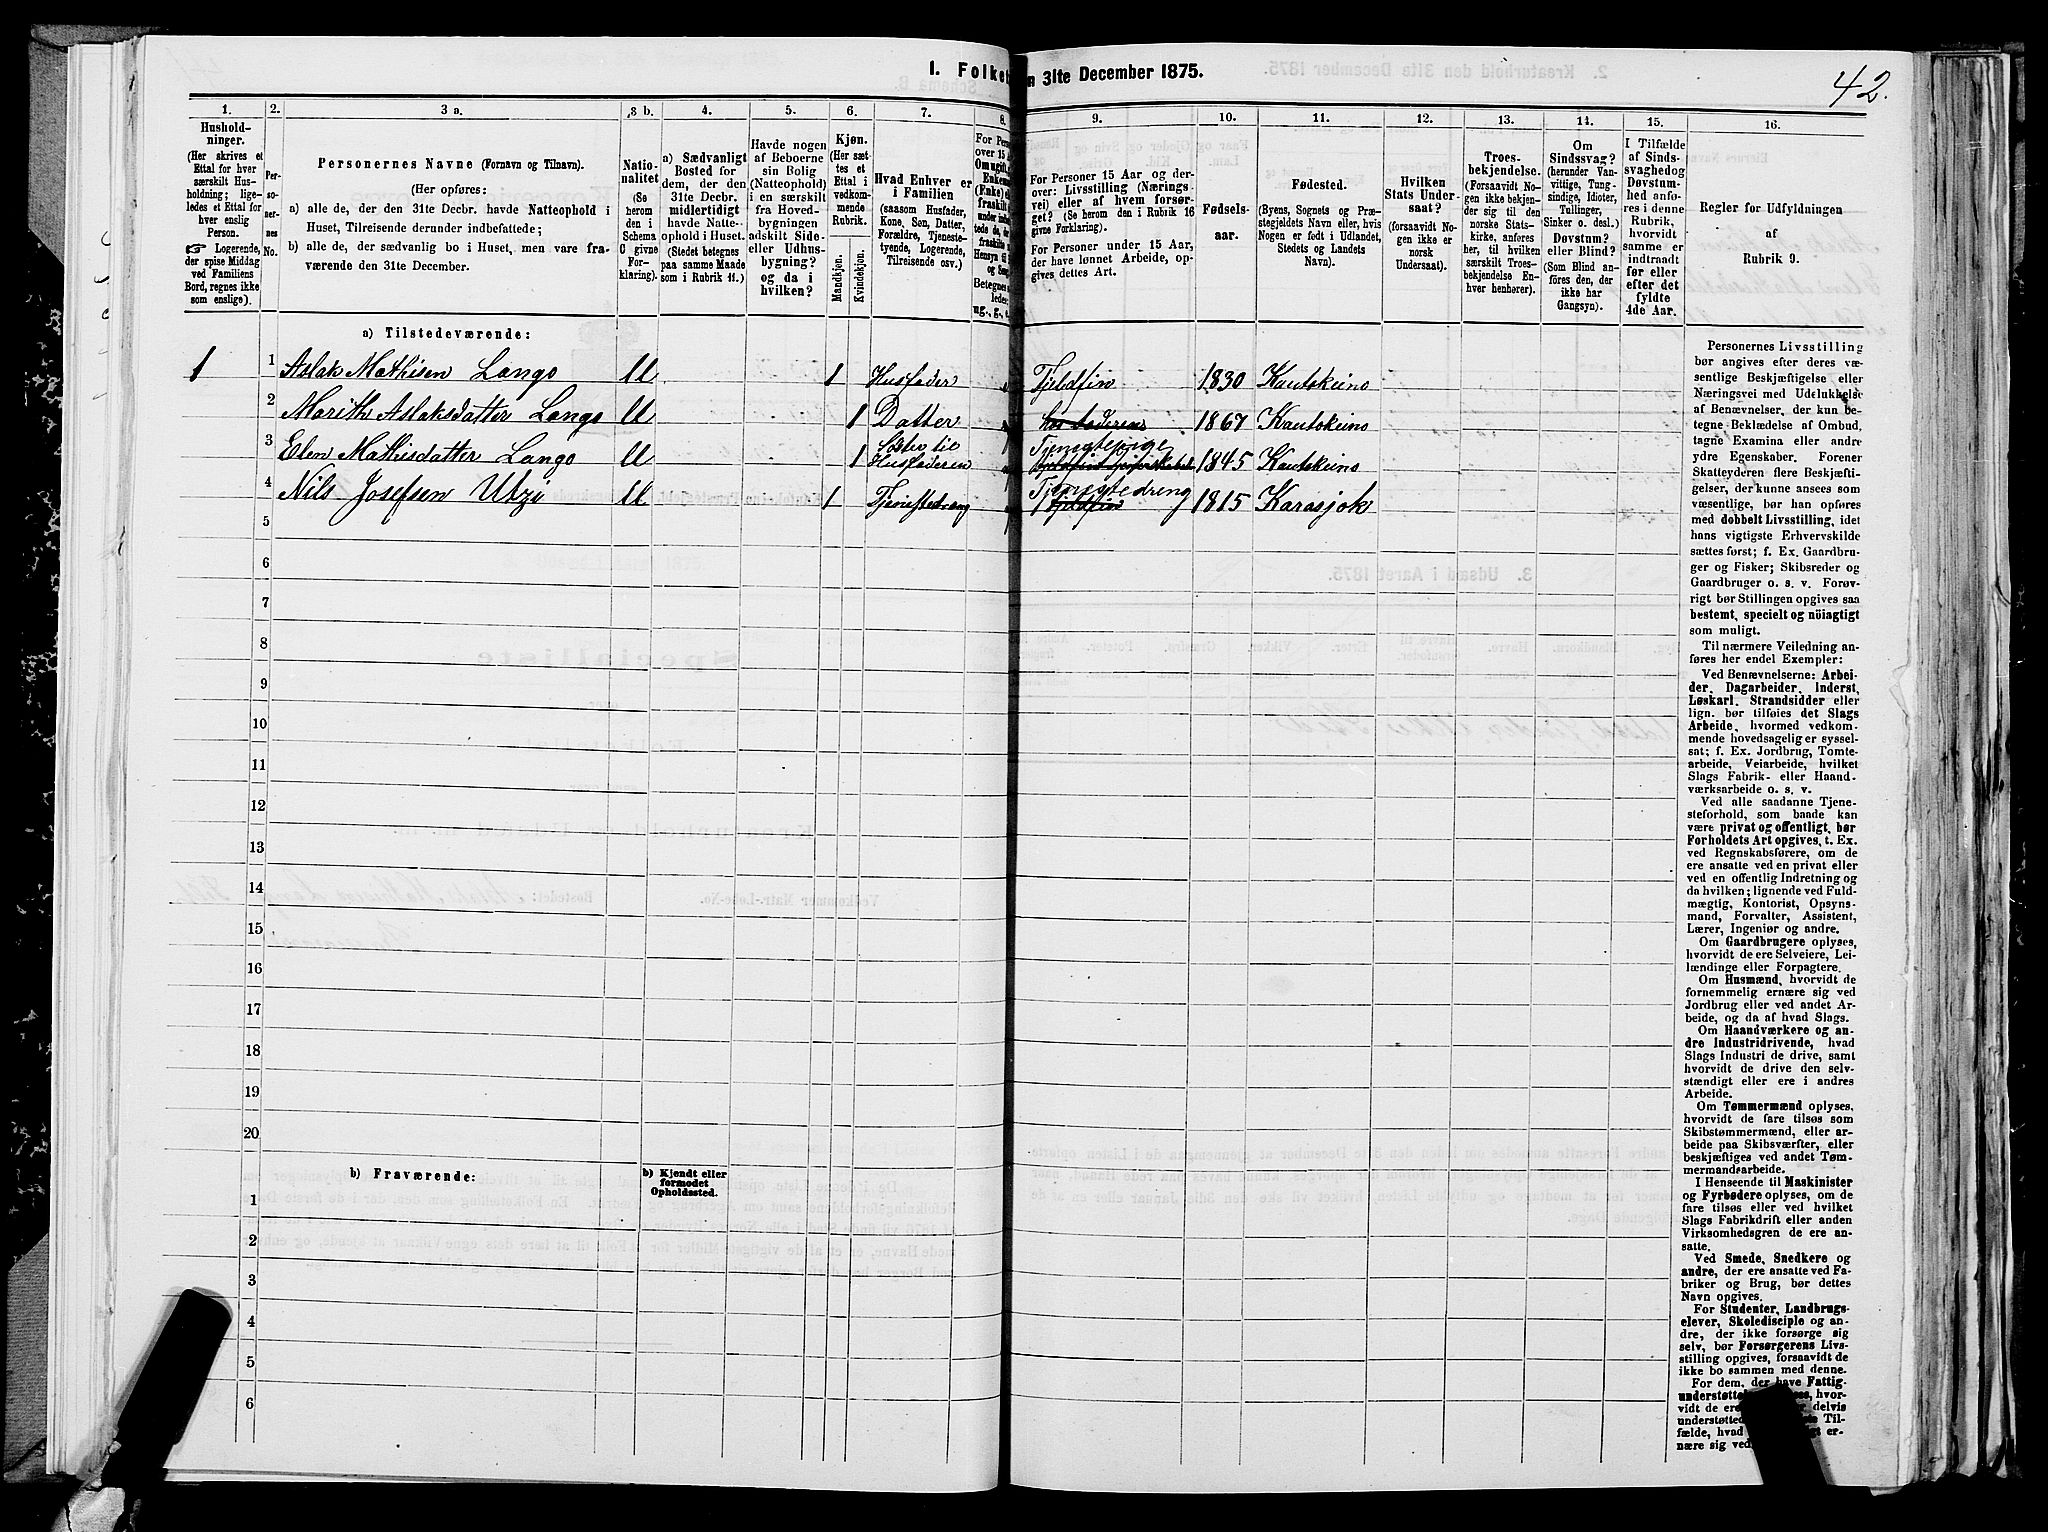 1. Folket
n 31te December 1875.
42.
1.
2.
3 a.
3 b.
4.
5.
6.
7.
8.
9.
10.
11.
12.
13.
14.
15.
16.
Hushold-
ninger.
(Her skrives et
Ettal for hver
særskilt Hus-
holdning; lige-
ledes et Ettal for
hver enslig
Person.
☞ Logerende,
der spise Middag
ved Familiens
Bord, regnes ikke
som enslige).
Per-
so-
ner-
nes
No.
Personernes Navne (Fornavn og Tilnavn).
(Her opføres:
a) alle de, der den 31te Decbr. havde Natteophold i
Huset, Tilreisende derunder indbefattede;
b) alle de, der sædvanlig bo i Huset, men vare fra-
værende den 31te December.
Natio-
nalitet
(Se
herom
den i
Schema
O givne
For-
klaring).
a) Sædvanligt
Bosted for
dem, der den
31te Decbr.
midlertidigt
havde Natte-
ophold i Huset.
(Stedet betegnes
paa samme Maade
som i Rubrik 11.)
Havde nogen
af Beboerne
sin Bolig
(Natteophold)
i en særskilt
fra Hoved-
bygningen
adskilt Side-
eller Udhus-
bygning?
og da i
hvilken?
Kjøn.
(Her sæt-
tes et
Ettal i
vedkom-
mende
Rubrik.
Mandkjøn.
Kvindekjøn.
Hvad Enhver er
i Familien
(saasom Husfader,
Kone, Søn, Datter,
Forældre, Tjeneste-
tyende, Logerende,
Tilreisende osv.)
For Pers
over 15 A
Om ugift,
Enkem
(Enke)
fraskilt
For Personer 15 Aar og der-
over: Livsstilling (Nærings-
vei) eller af hvem forsør-
get? (Se herom den i Rubrik 16
givne Forklaring).
For Personer under 15 Aar,
der have lønnet Arbeide, op-
gives dettes Art.
Fødsels-
aar.
Fødested.
(Byens, Sognets og Præ-
stegjeldets Navn eller, hvis
Nogen er født i Udlandet,
Stedets og Landets
Navn).
Hvilken
Stats Under-
saat?
(forsaavidt No-
gen ikke er
norsk
Undersaat).
Troes-
bekjendelse.
(Forsaavidt No-
gen ikke bekjen-
der sig til den
norske Stats-
kirke, anføres
her, til hvilken
særskilt Troes-
bekjendelse En-
hver henhører).
Om
Sindssvag?
(herunder Van-
vittige, Tung-
sindige, Idioter,
Tullinger,
Sinker o. desl.)
Døvstum?
eller Blind?
(Som Blind an-
føres den, der
ikke har
Gangsyn).
I Tilfælde
af Sinds-
svaghed og
Døvstum-
hed anfø-
res i denne
Rubrik,
hvorvidt
samme er
indtraadt
før eller
efter det
fyldte
4de Aar.
Regler for Udfyldningen
af
Rubrik 9.
a) Tilstedeværende:
1 1 Aslak Mathisen Lango U 1 Husfader Fjeldfin 1830 Kautokeino
2 Marith Aslaksdatter Lango U 1 Datter hos faderen 1867 Kautokeino
3 Elen Mathisdatter Lango U 1 Søster til Husfaderen Tjenestepige 1845 Kautokeino
4 Nils Josefsen Utzi U 1 Tjenestedreng Tjenestedreng Fjeldfin 1815 Karasjok
5
6
7
8
9
10
11
12
13
14
15
16
17
18
19
20
b) Fraværende:
b) Kjendt eller
formodet
Opholdssted.
1
2
3
4
5
6
Personernes Livsstilling
bør angives efter deres væ-
sentlige Beskjæftigelse eller
Næringsvei med Udelukkelse
af Benævnelser, der kun be-
tegne Beklædelse af Ombud,
tagne Examina eller andre
ydre Egenskaber. Forener
Skatteyderen flere Beskjæfti-
gelser, der kunne ansees som
væsentlige, bør han opføres
med dobbelt Livsstilling, idet
hans vigtigste Erhvervskilde
sættes først; f. Ex. Gaardbru-
ger og Fisker; Skibsreder og
Gaardbruger o. s. v. Forøv-
rigt bør Stillingen opgives saa
bestemt, specielt og nöiagtigt
som muligt.
Til nærmere Veiledning an-
føres her endel Exempler:
Ved Benævnelserne: Arbei-
der, Dagarbeider, Inderst,
Løskarl, Strandsidder eller
lign. bør tilføies det Slags
Arbeide, hvormed vedkom-
mende hovedsagelig er syssel-
sat; f. Ex. Jordbrug, Tomte-
arbeide, Veiarbeide, hvilket
Slags Fabrik- eller Haand-
værksarbeide o. s. v.
Ved alle saadanne Tjene-
steforhold, som baade kan
være privat og offentligt, bør
Forholdets Art opgives, t. Ex.
ved Regnskabsførere, om de
ere ansatte ved en privat eller
ved en offentlig Indretning og
da hvilken; lignende ved Fuld-
mægtig, Kontorist, Opsyns-
mand, Forvalter, Assistent,
Lærer, Ingeniør og andre.
Om Gaardbrugere oplyses,
hvorvidt de ere Selveiere, Lei-
lændinge eller Forpagtere.
Om Husmænd, hvorvidt de
fornemmelig ernære sig ved
Jordbrug eller ved andet Ar-
beide, og da af hvad Slags.
Om Haandværkere og an-
dre Industridrivende, hvad
Slags Industri de drive, samt
hvorvidt de drive den selv-
stændigt eller ere i andres
Arbeide.
Om Tømmermænd oplyses,
hvorvidt de fare tilsøs som
Skibstømmermænd, eller ar-
beide paa Skibsværfter, eller
beskjæftiges ved andet Tøm-
mermandsarbeide.
I Henseende til Maskinister
og Fyrbødere oplyses, om de
fare tilsøs eller ved hvilket
Slags Fabrikdrift eller anden
Virksomhedsgren de ere an-
satte.
Ved Smede, Snedkere og
andre, der ere ansatte ved Fa-
briker og Brug, bør dettes
Navn opgives.
For Studenter, Landbrugs-
elever, Skoledisciple og an-
dre, der ikke forsørge sig
selv, bør Forsørgerens Livs-
stilling opgives, forsaavidt de
ikke bo sammen med denne.
For dem, der have Fattig-
understøttel hvor-
vidt de ere delvis
understøttede Til-
fælde, hvad er-
nære sig ved